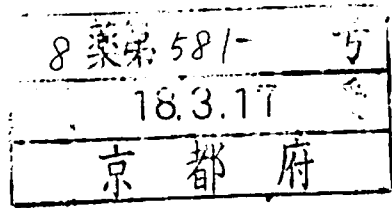 8薬第581-号
18.3.17
京都府